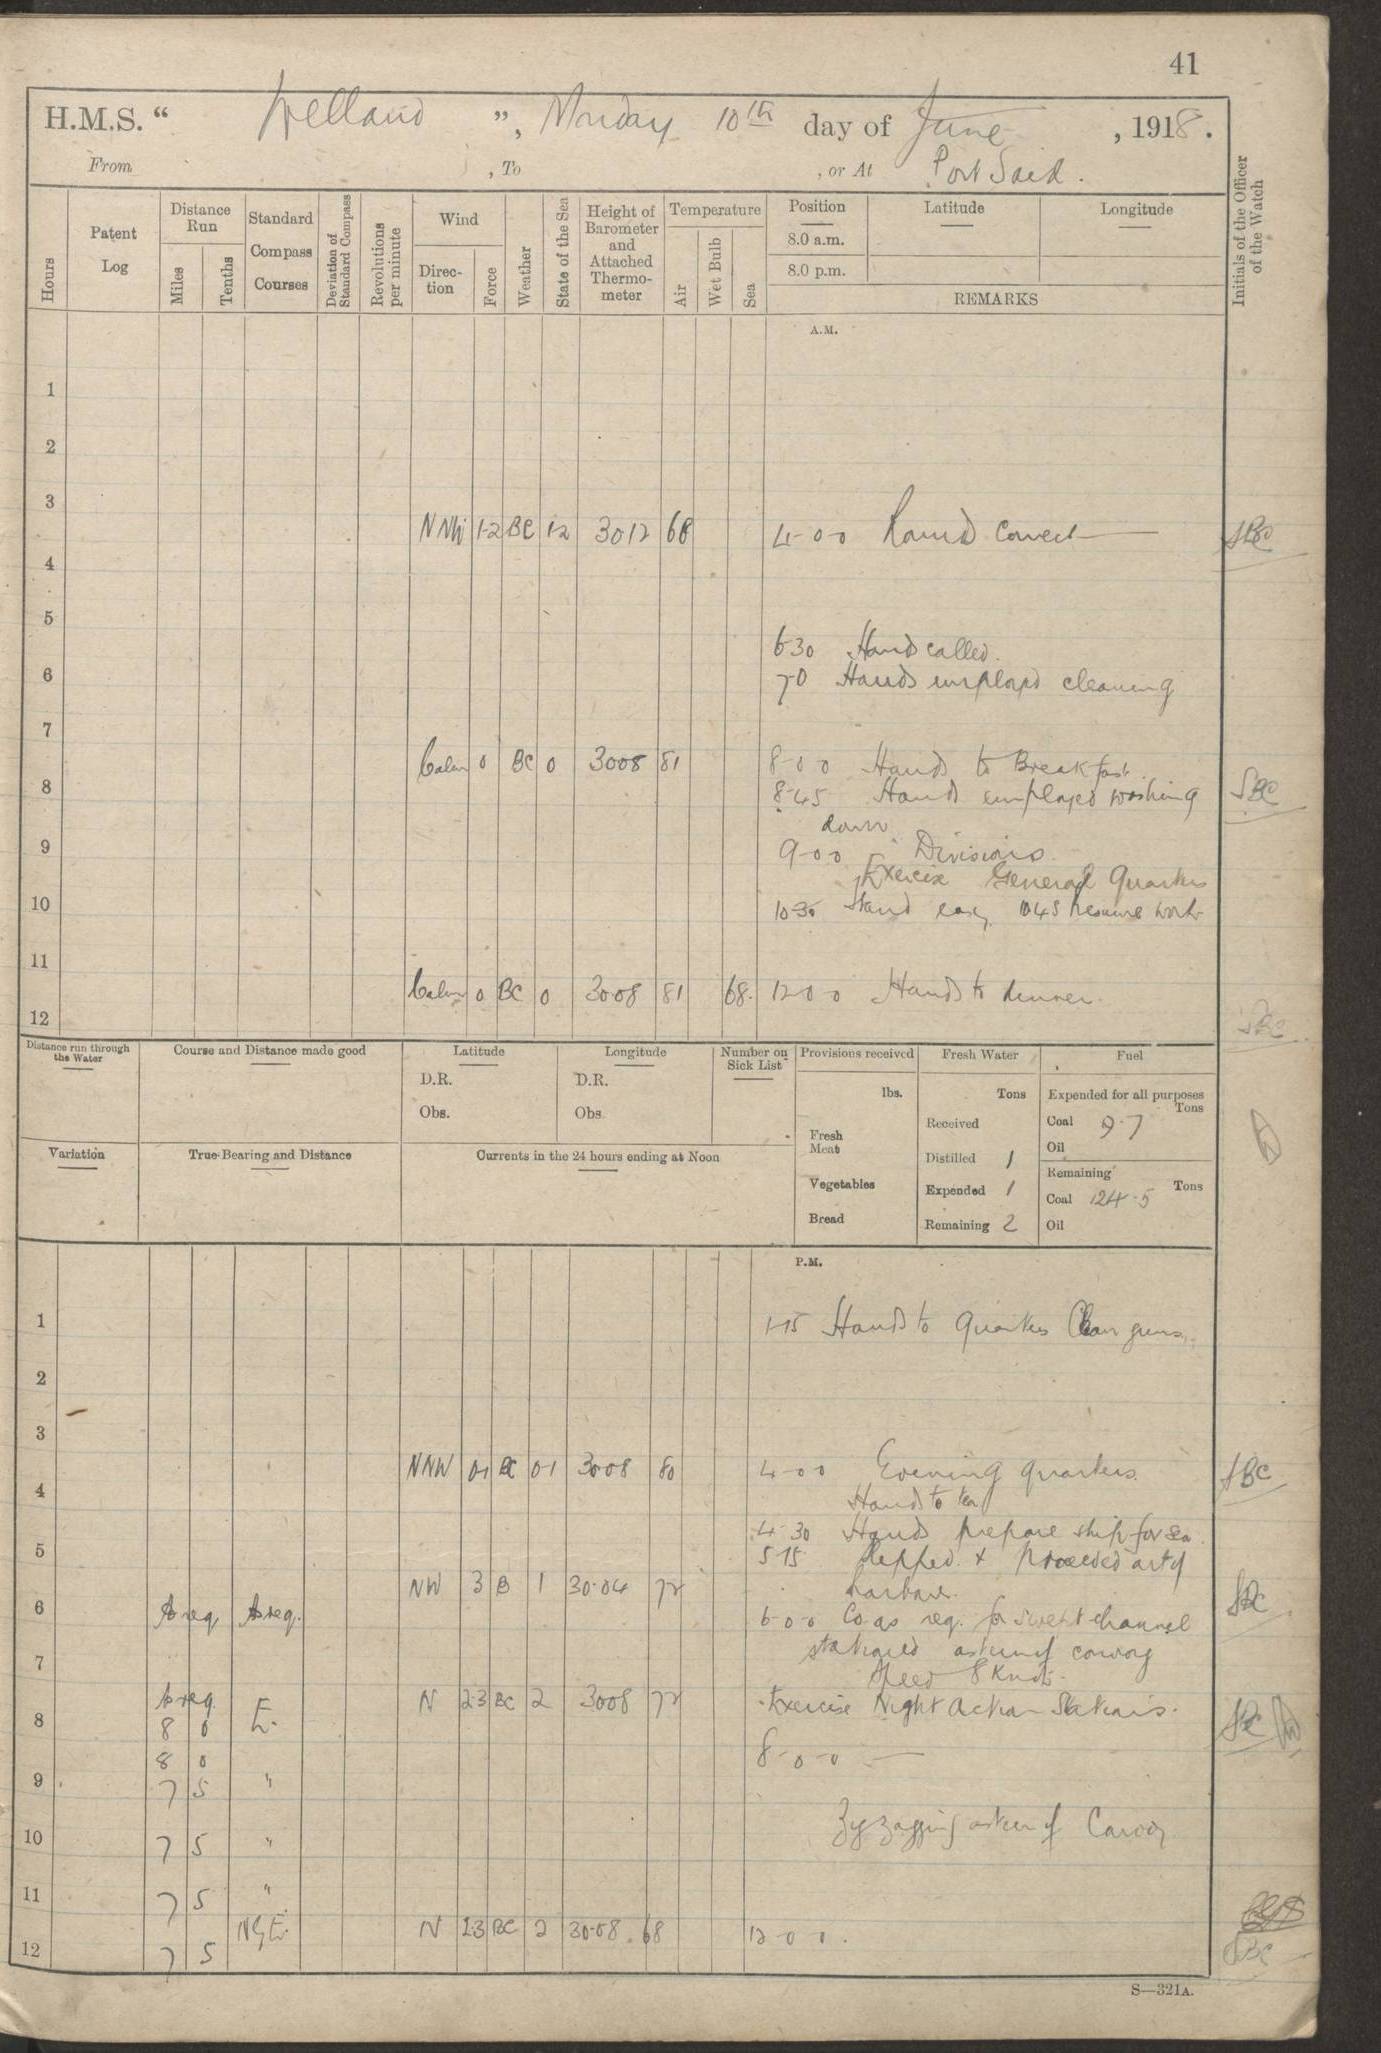 41
H.M.S. " Welland ", Monday 10th day of June, 1918.
From , To , or At Port Said.
Hours
Patent Log
Distance Run
Miles
Tenths
Standard Compass Courses
Deviation of Standard Compass
Revolutions per minute
Wind
Direction
Force
Weather
State of the Sea
Height of Barometer and Attached Thermometer
Temperature
Air
Wet Bulb
Sea
Position
8.0 a.m.
8.0 p.m.
Latitude
Longitude
REMARKS
Initials of the Officer of the Watch
A.M.
1
2
3
NNW 1-2 BC 1-2 3012 68 4-0-0 Rounds Correct
4
5
6-30 Hands called.
6
7-0 Hands employed cleaning
7
Calm 0 BC 0 3008 81 8-0-0 Hands to Breakfast
8
8-45 Hands employed washing SBC
down.
9
9-0-0 Divisions.
Exercise General Quarters
10
10-30 Stand easy. 1045 resume work
11
Calm 0 BC 0 3008 81 68. 12-0-0 Hands to dinner.
12
SBC
Distance run through the Water
Course and Distance made good
Latitude
D.R.
Obs.
Longitude
D.R.
Obs.
Number on Sick List
Provisions received
lbs.
Fresh Meat
Vegetables
Bread
Fresh Water
Tons
Received
Distilled 1
Expended 1
Remaining 2
Fuel
Expended for all purposes
Tons
Coal 9.7
Oil
Remaining
Tons
Coal 124.5
Oil
Variation
True Bearing and Distance
Currents in the 24 hours ending at Noon
P.M.
1
1-15 Hands to Quarters Clean guns.
2
3
NNW 0-1 BC 0-1 3008 80 4-0-0 Evening quarters. SBC
4
Hands to tea
4-30 Hands prepare ship for sea
5
5-15 Slipped & Proceeded out of
NW 3 B 1 30.04 72 harbour.
6
As req. As req. 6-0-0 Co. as req. for swept channel
stationed astern of convoy
7
Speed 8 Knots.
As req. N 2-3 BC 2 3008 72 Exercise Night Action Stations.
8
8 0 E.
8 0 8-0-0
9
7 5 "
Zigzagging astern of Convoy
10
7 5 "
11
7 5 "
N 2-3 BC 2 30.08 68 12-0-0.
12
7 5
S—321A.